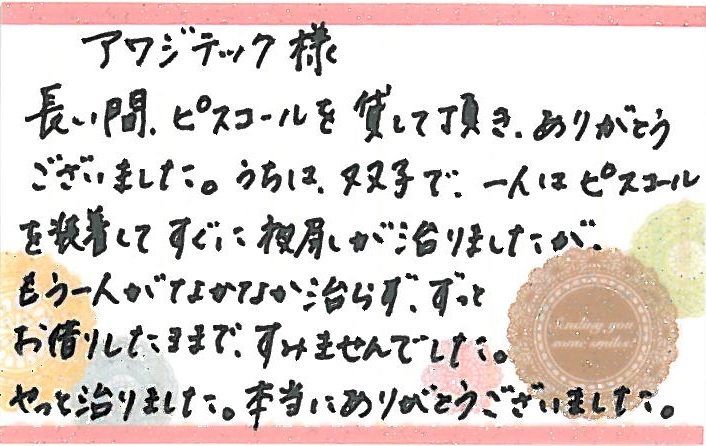 アワジテック様
長い間、ピスコールを貸して頂き、ありがとう
ございました。うちは、双子で、一人はピスコール
を装着してすぐに夜尿しが治りましたが、
もう一人がなかなか治らず、ずっと
お借りしたままで、すみませんでした。
やっと治りました。本当にありがとうございました。
Sending you